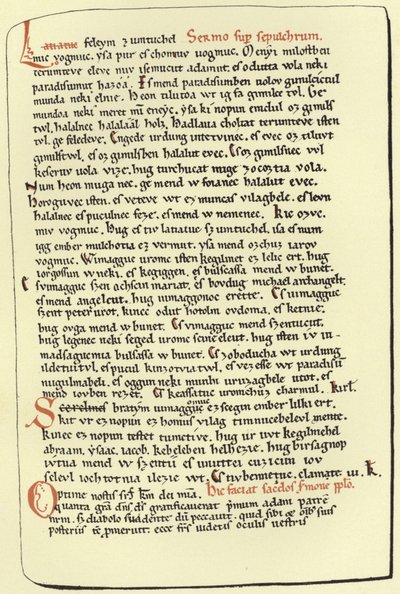 Latiatuc feleym zumtuchel Sermo sup sepulchrum.
mic vogmuc. ysa pur es chomuv uogmuc. Menyi milostben
terumteve eleve miv isemucut adamut. es odutta vola neki
paradisumut hazoa. Es mend paradisumben uolov gimilcictul
munda neki elnie. Heon tilutoa wt ig fa gimilce tvl. Ge
mundoa neki meret nu eneyc. ysa ki nopun emdul oz gimils
twl. halalnec halalaal holz. Hadlaua choltat terumteve isten
tvl. ge feledeve. Engede urdung intetvinec. es evec oz tiluvt
gimilstwl. es oz gimilsben halalut evec. Es oz gimilsnec vvl
keseruv uola vize. hug turchucat mige zocoztia vola.
Num heon muga nec. ge mend w foianec halalut evec.
Horoguvec isten. es veteve wt ez muncas vilagbele. es levn
halalnec es puculnec feze. es mend w nemenec. Kic ozvc.
miv vogmuc. Hug es tiv latiatuv szumtuchel. isa es num
igg ember mulchotia ez vermut. ysa mend ozchuz iarov
vogmuc. Wimagguc uromv isten kegilmet ez lelic ert. hug
iorgossun w neki. es kegiggen. es bulsassa mend w bunet.
Es vimagguc szen achscin mariat. es bovdug michael archangelt.
es mend angelcut. hug uimaggonoc erette. Es uimagguc
szent peter urot. kinec odut hotolm ovdonia. es ketnie.
hug ovga mend w bunet. Es vimagguc mend szentucut.
hug legenec neki seged uromc scine eleut. hug isten iv ui-
madsagucmia bulsassa w bunet. Es zoboducha wt urdung
ildetuitvl. es pucul kinzotviatwl. es vezesse wt paradisu
nugulmabeli. es oggun neki munhi uruzagbele utot. es
mend iovben rezet. Es keassatuc uromchuz charmul. kirl.
Scerelmes bratym uimagguc omuc ez scegin ember lilki ert.
kit vr ez nopun ez homus vilag timnucebelevl mente.
kinec ez nopun testet tumetive. hug ur uvt kegilmehel
abraam. ysaac. iacob. kebeleben helhezie. hug birsagnop
ivtva mend w szentii es unuttei cuzicun iov
felevl iochtotnia ilezie wt. Es tivbennetuc. clamate iii. k.
hic faciat sacdos
quanta grā primum adam
diabolo suadente peccauit. quid sibi
posteris ecce frs videtis oculis vestris